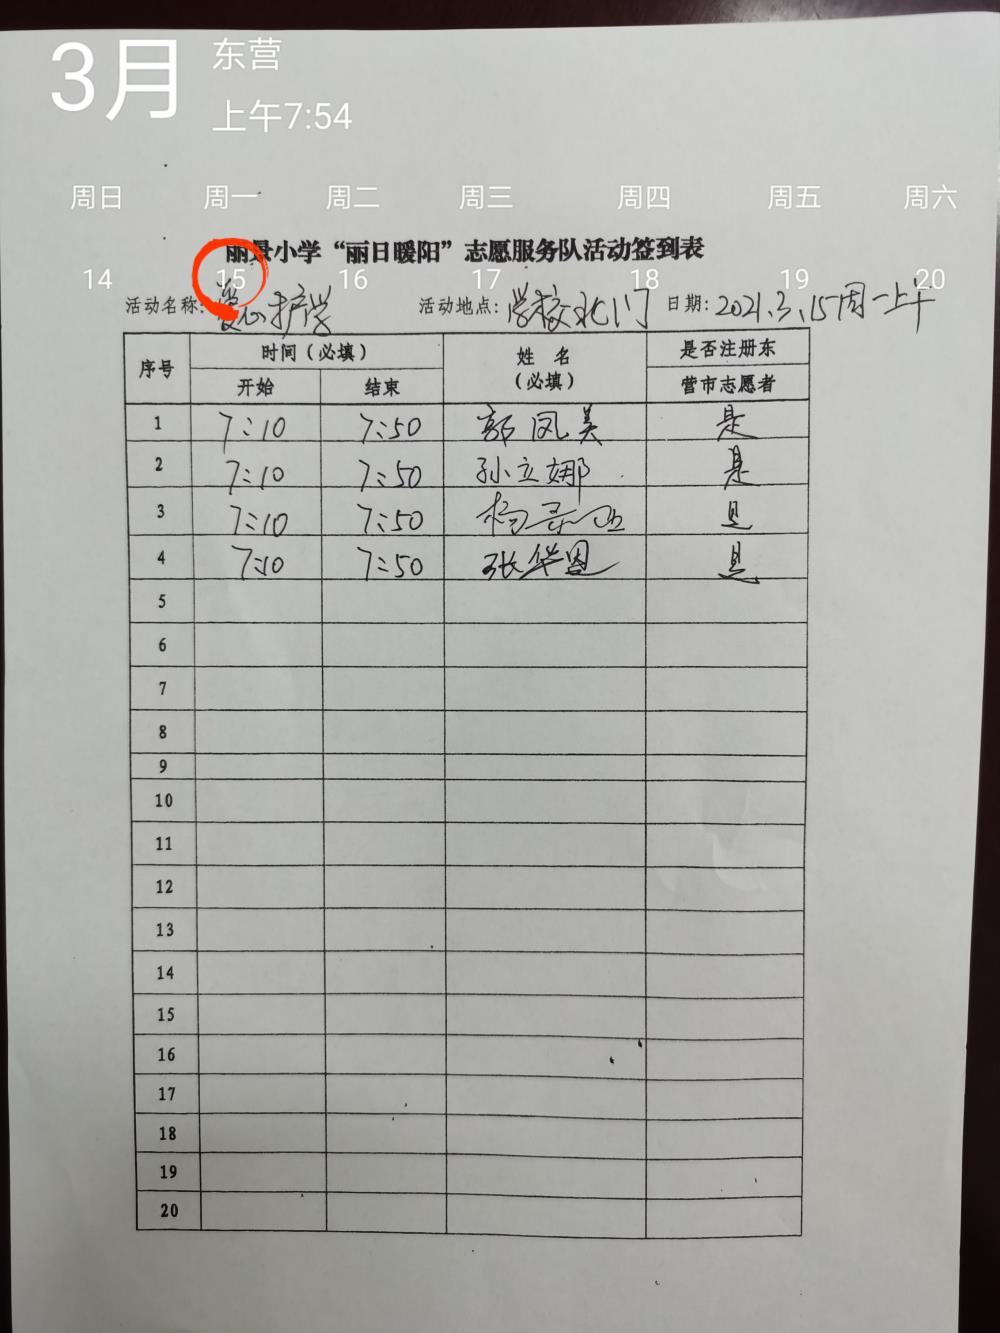 3月
东营
上午7:54
周日 周一 周二 周三 周四 周五 周六
丽景小学“丽日暖阳”志愿服务队活动签到表
14 15 16 17 18 19 20
活动名称: 爱心护学 活动地点: 学校北门 日期: 2021.3.15周一上午
序号 时间(必填) 姓名 (必填) 是否注册东
开始 结束 营市志愿者
1 7:10 7:50 郭凤美 是
2 7:10 7:50 孙立娜 是
3 7:10 7:50 杨 是
4 7:10 7:50 张华恩 是
5
6
7
8
9
10
11
12
13
14
15
16
17
18
19
20